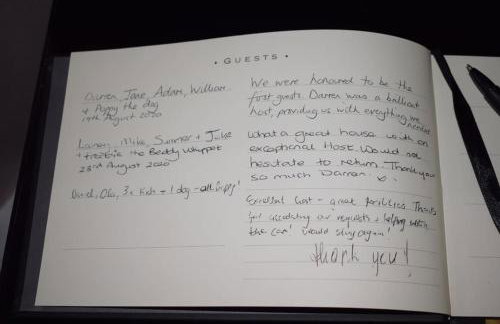 • GUESTS •
Darren, Jane, Adam, William
+ Poppy the dog
August 2020
We were honoured to be the
first guests. Darren was a brilliant
host, providing us with everything we
needed
Laney, Mike, Summer + 
+ the Beddy Whippet
23rd August 2020
What a great house with an
exceptional Host. Would not
hesitate to return. Thank you
so much Darren. x
3x Kids + 1 dog - all happy!
Excellent host - great facilities. Thanks
for accommodating our requests + helping with
the car! Would stay again!
Thank you!